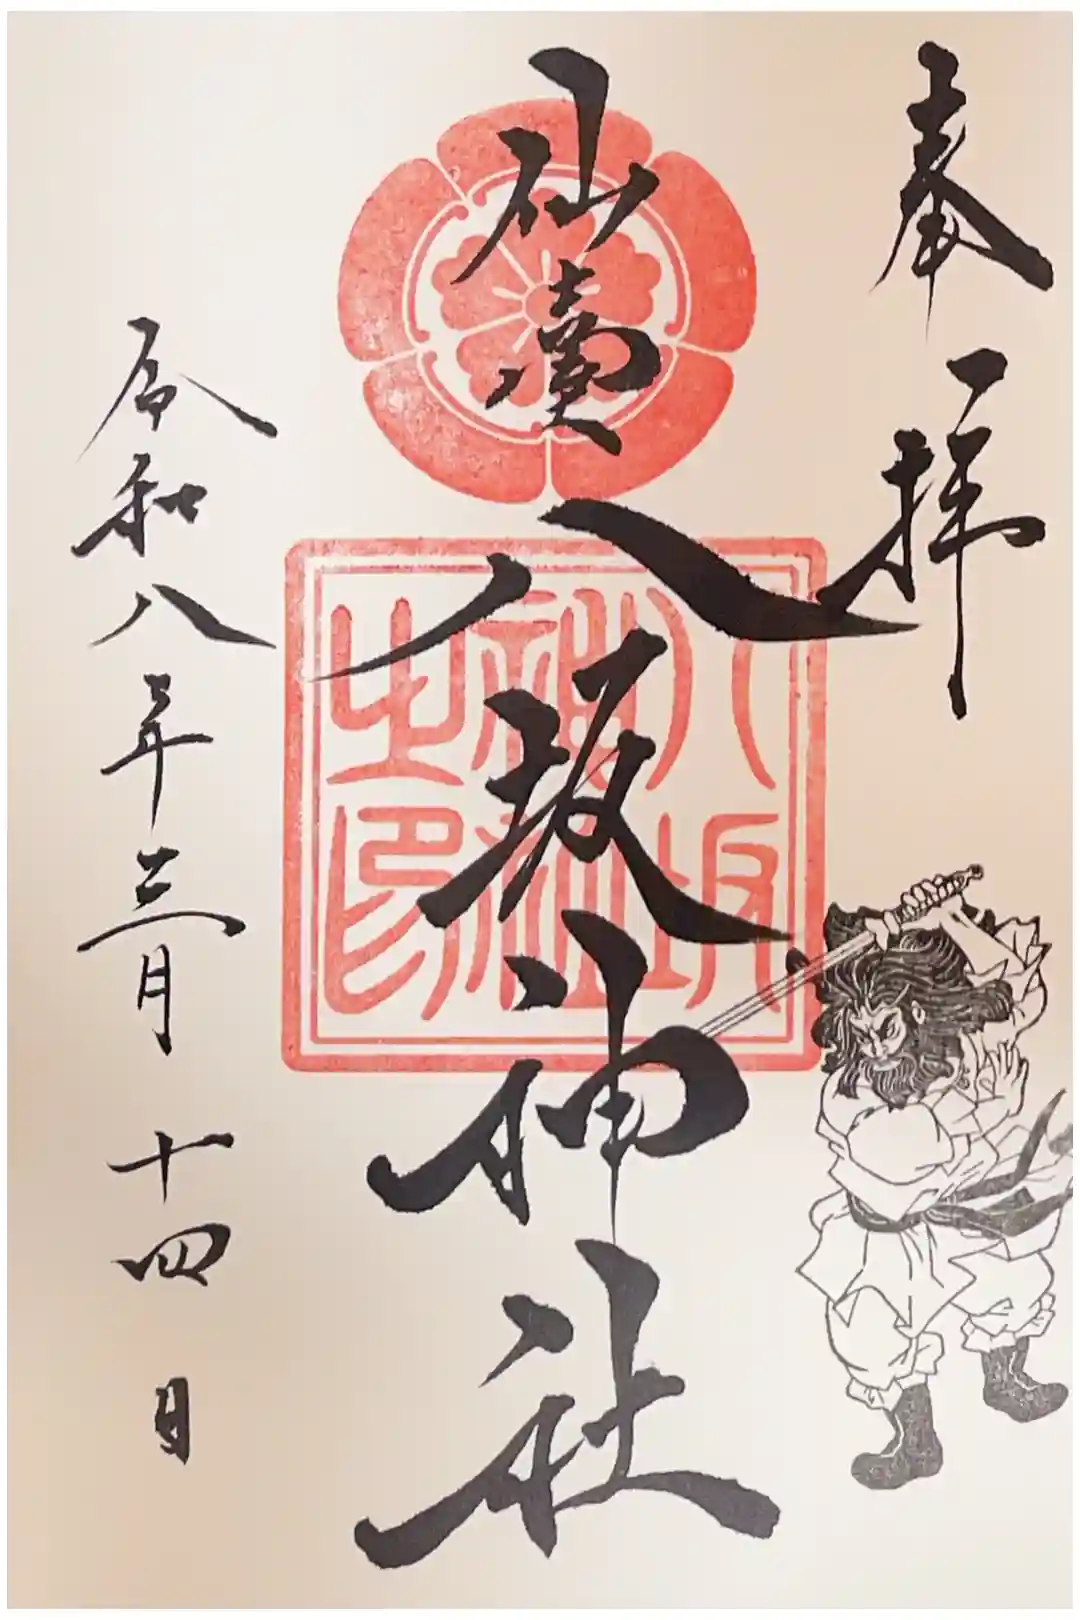 奉拝
仙臺八坂神社
八坂
神社
之印
令和八年三月十四日